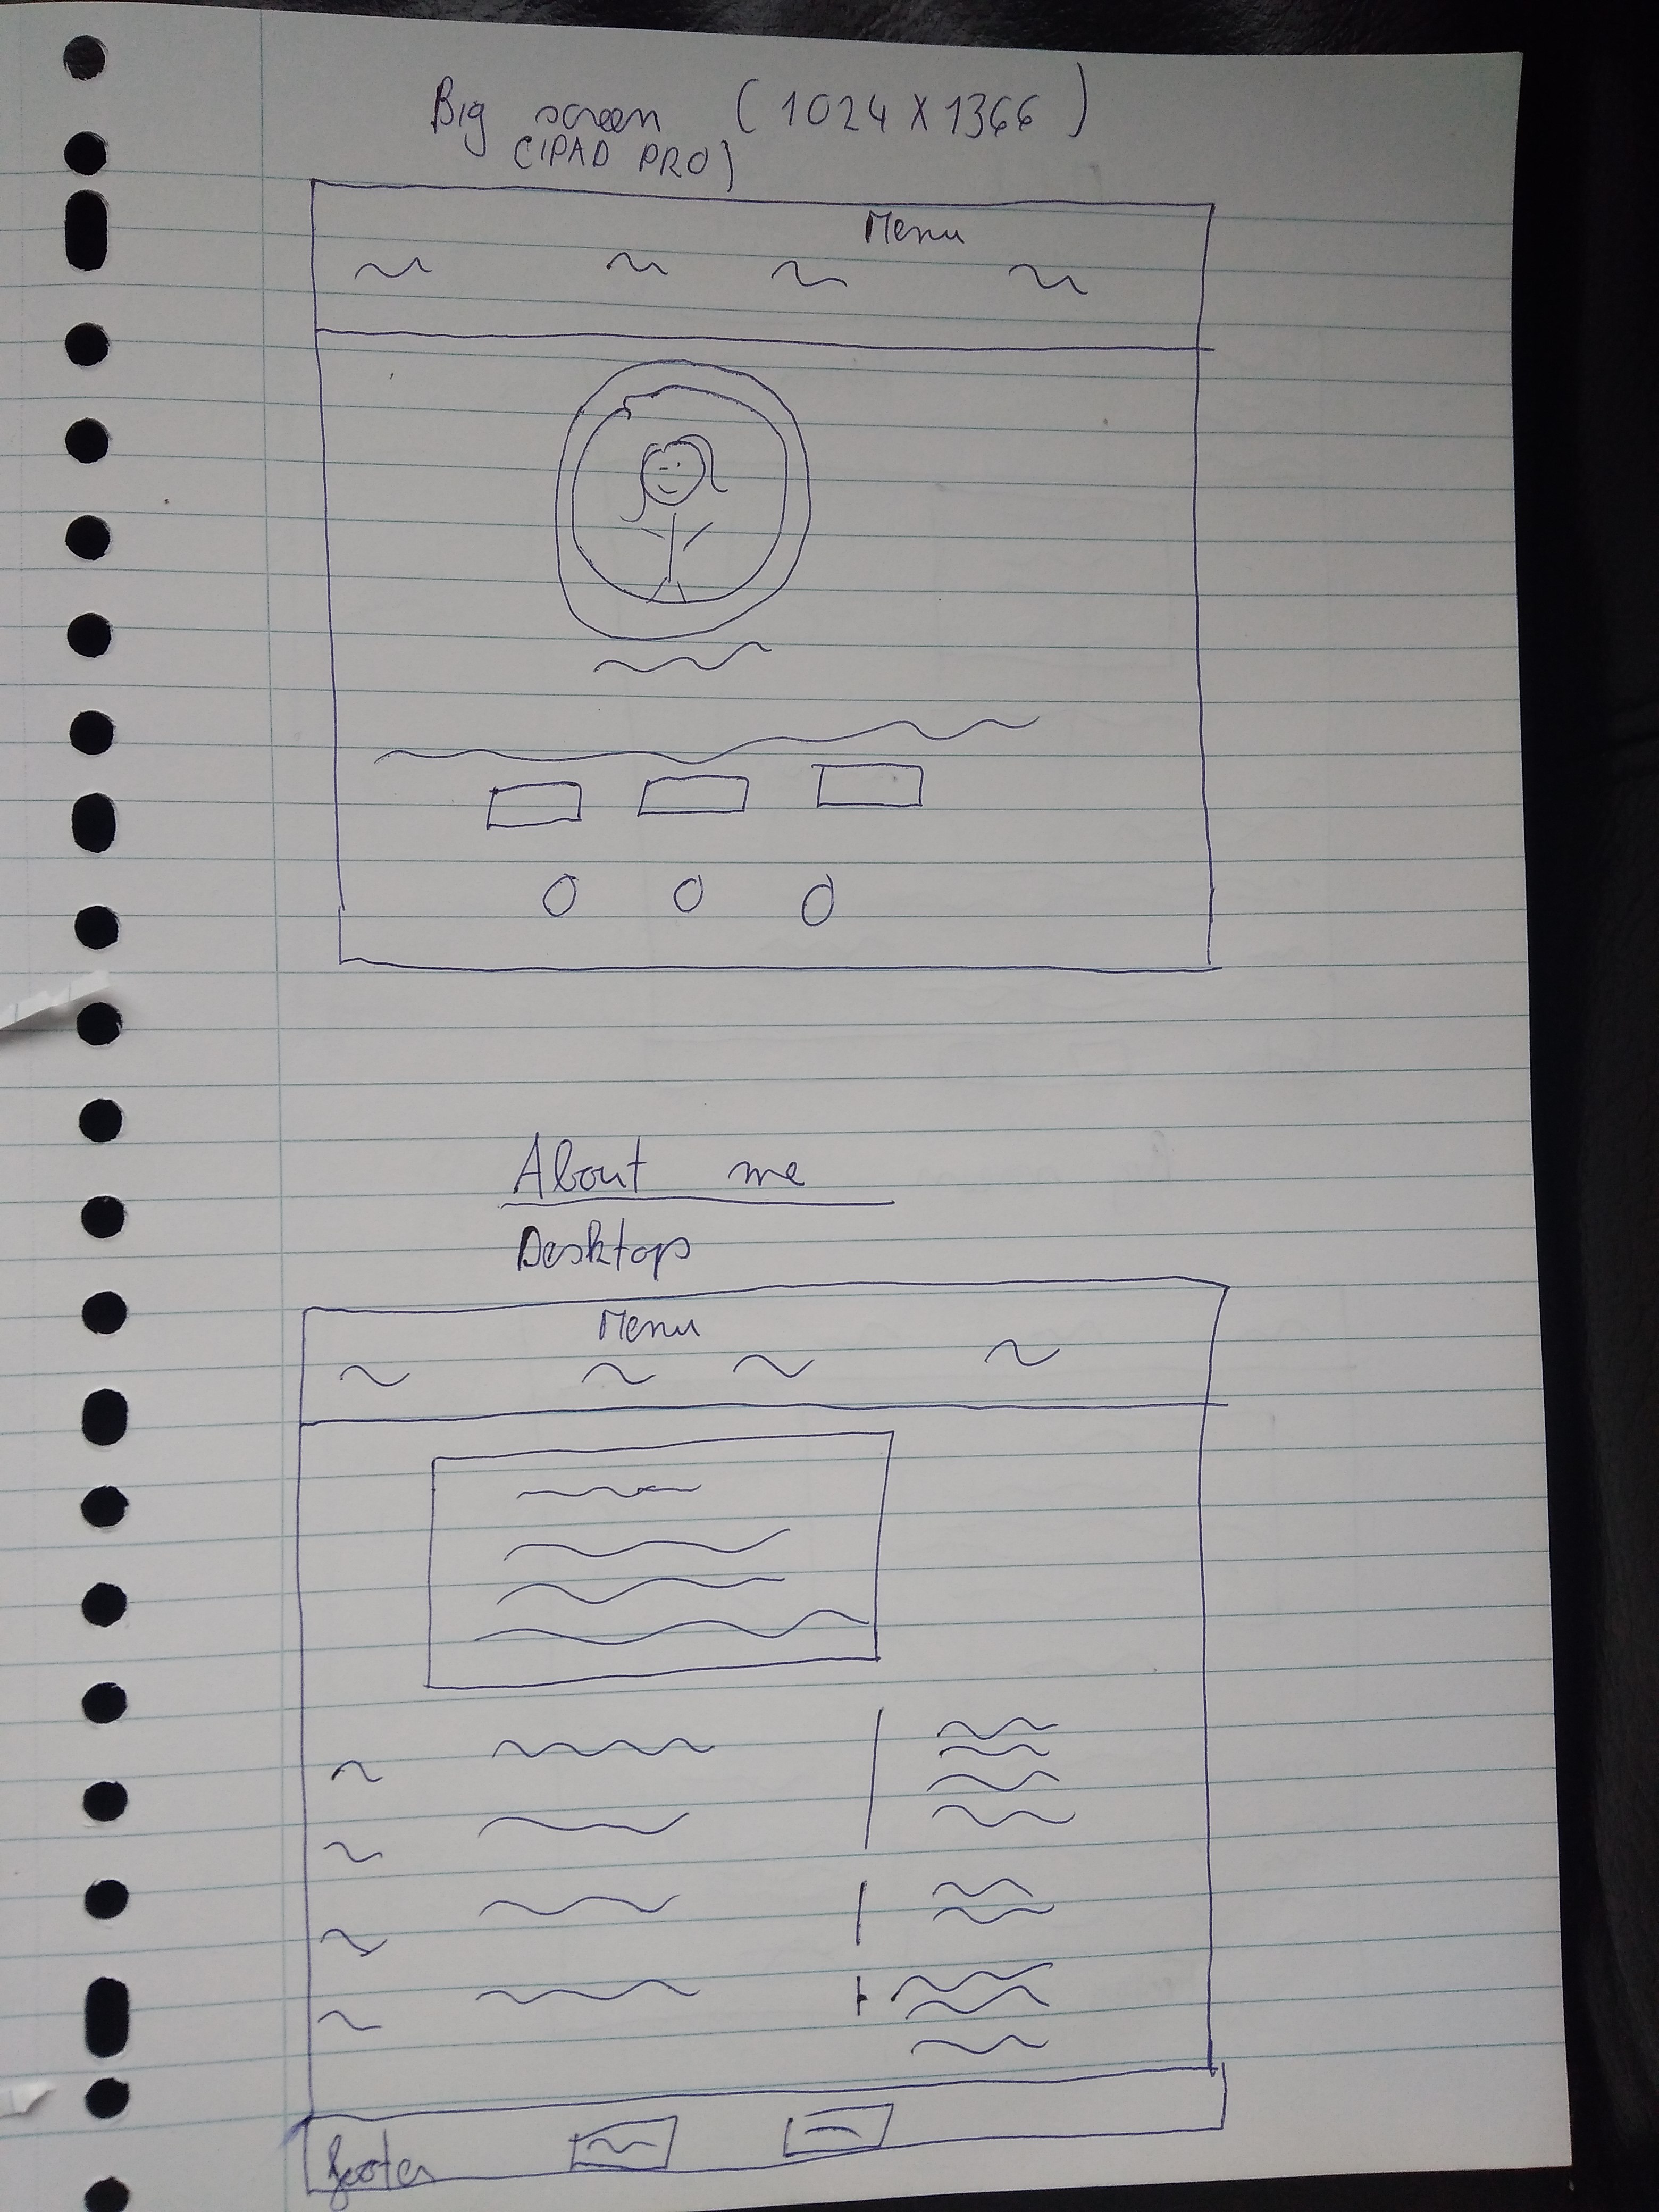 Big screen (1024 X 1366)
(IPAD PRO)
Menu
About me
Desktop
Menu
Footer